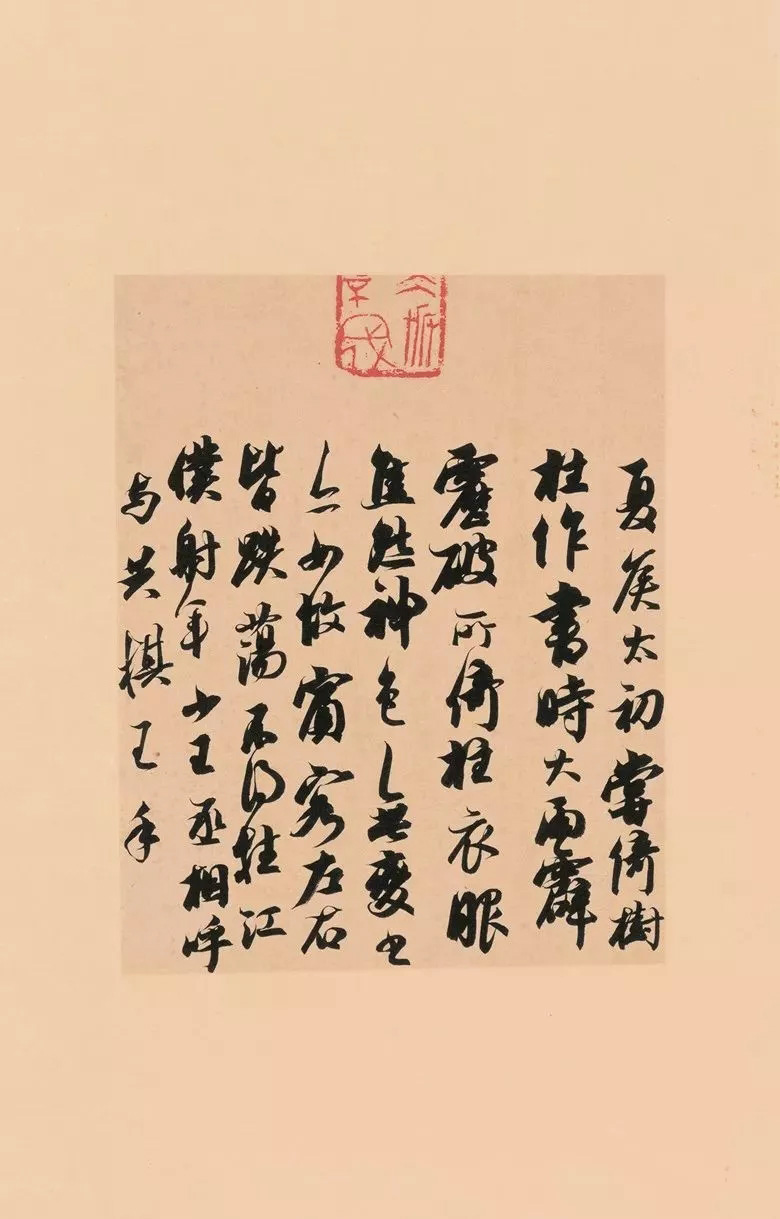 夏侯太初嘗倚樹
柱作書時大雨霹
靂破所倚柱衣服
焦然神色無變書
亦如故賓客左右
皆跌蕩不得住江
僕射年少王丞相呼
与共棋王手